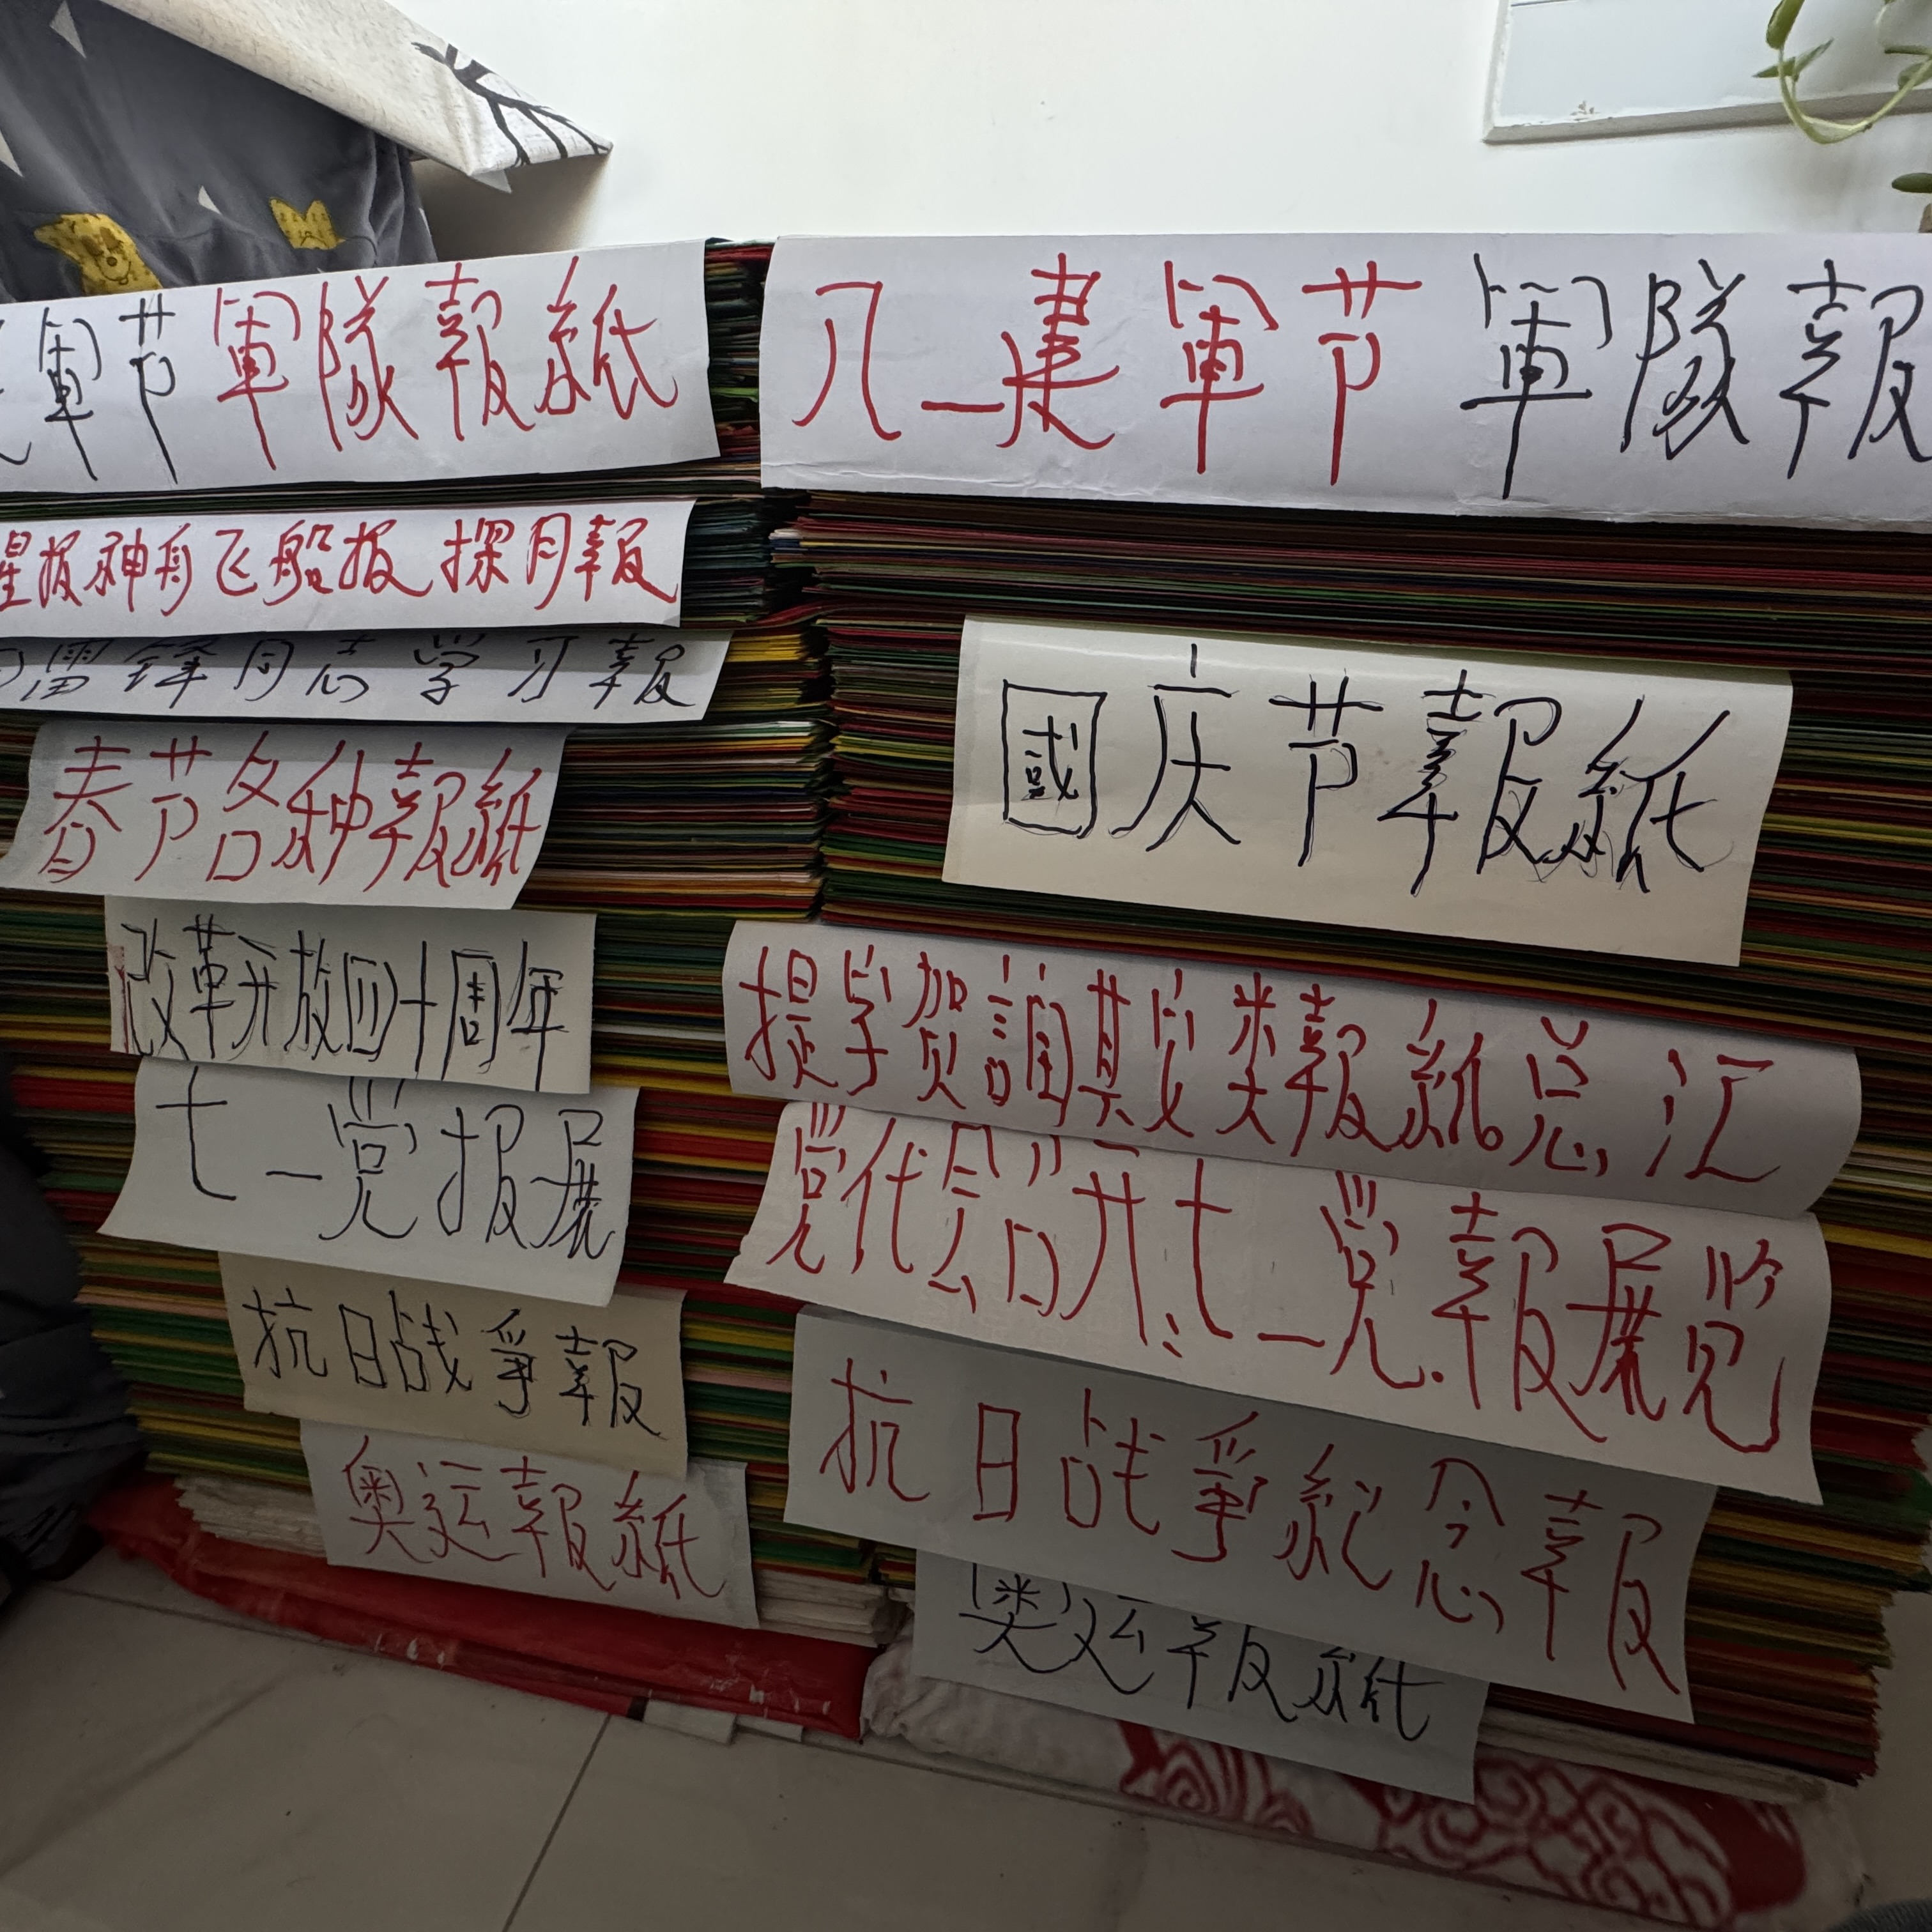 軍节軍隊報紙
星报神舟飞船报 探月報
雷锋同志学习報
春节各种報紙
改革开放四十周年
七一党报展
抗日战爭報
奥运報紙
八一建軍节 軍隊報
國庆节報紙
提字贺調类報紙总汇
党代会召开七一党報展览
抗日战爭紀念報
奥运報紙